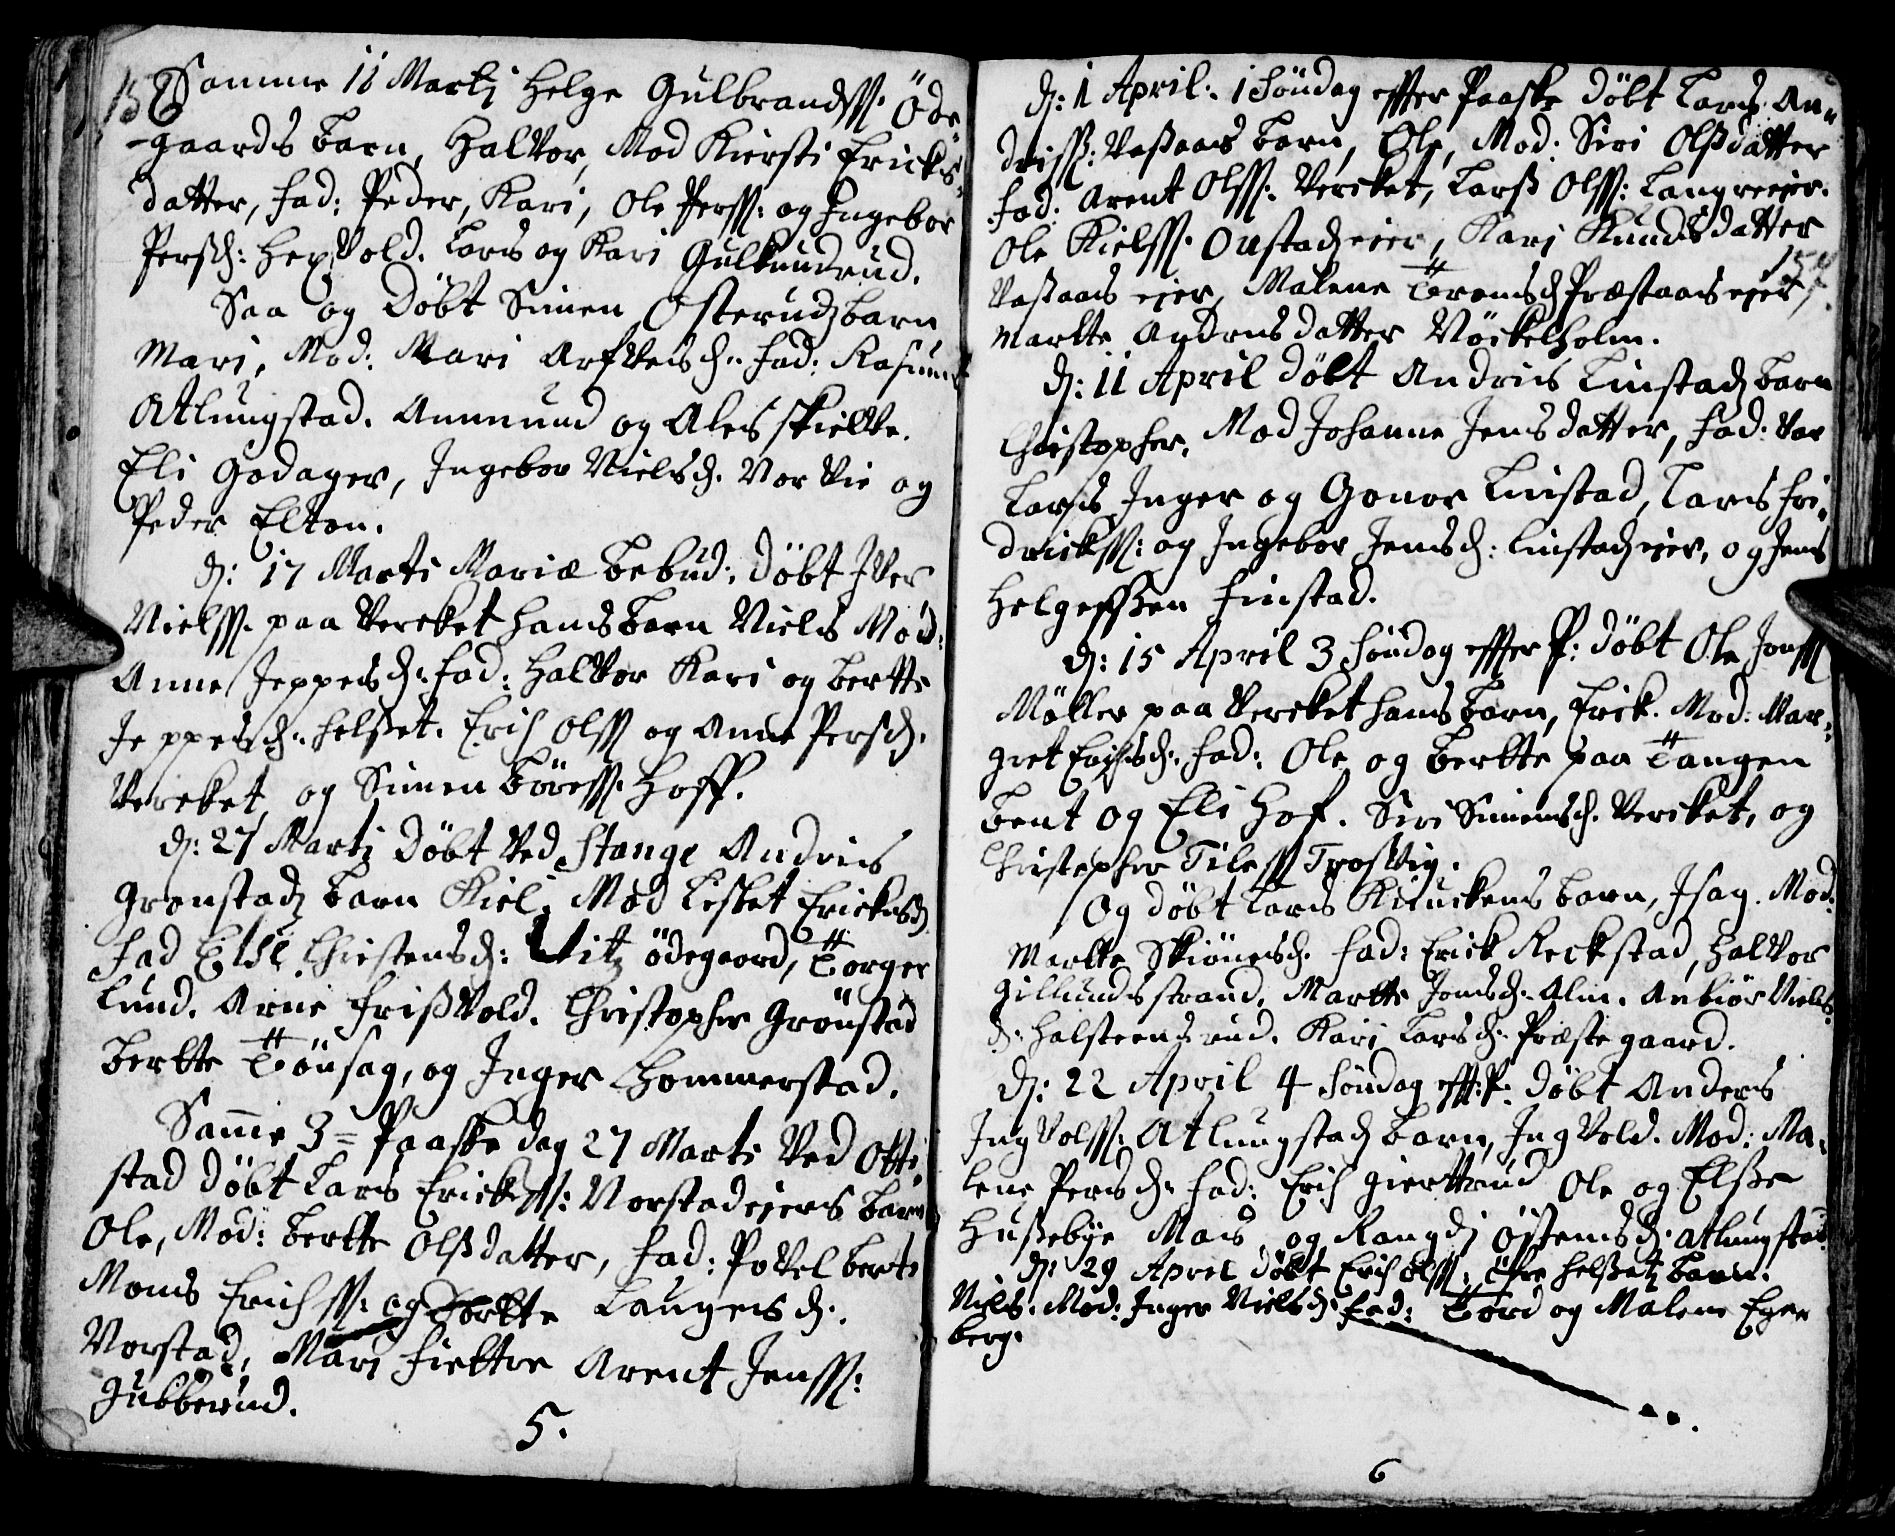 156
Samme 11 Martj Helge Gulbrandss. Öde
-gaards barn, Halvor, Mod Kiersti Ericks-
datter, fad: Peder, Kari, Ole Perss: og Ingebor
Persd: Hexvold. Lars og Kari Gulknudrud.
Saa og Döbt Simen Osterudz barn
Mari, Mod: Mari Arfvesd. fad: Rasmus
Atlungstad. Ammund og Ales Skielve.
Eli Godager, Ingebor Nielsd. Nor Vie og
Peder Elton.
D: 17 Marti Mariæ bebud: döbt Iver
Nielss. paa Vercket hans barn Niels Mod:
Anne Jeppesd. fad: Halvor Kari og bertte
Jeppesd. Helset. Erich Olss og Anne Persd.
Vercket, og Simen Böress. Hoff.
D: 27 Martj Döbt Ved Stange Andries
Grönstadz barn Kiel, Mod Lisbet Ericksd
fad Else Christensd: Vitz ödegaard, Torger
Lund. Arne Frisvold. Christopher Grönstad
bertte Tönsag, og Inger Hommerstad.
Samme 3= Paaske dag 27 Marti Ved Otte
stad döbt Lars Erickss: Norstadeiers barn
Ole, Mod: bertte Olsdatter, fad: Povel berte
Mons Erichss: og Dortte Laugesd.
Norstad, Mari fiettre Arent Jenss:
Gubberud.
5.
D: 1 April. 1 Söndag efter Paaske döbt Lars An-
driss: Vasaas barn, Ole, Mod: Siri Olsdatter
fad: Arent Olss: Vercket, Lars Olss: Langreeier.
Ole Kielss. Oustadeier, Kari Knudsdatter
157
Vasaas eier, Malene Tromsd Præstaas eier,
Martte Andersdatter Nöckelholm.
D: 11 April döbt Andries Linstadz barn
Christopher. Mod Johanne Jensdatter, fad: Var
Lars, Inger og Gonor Linstad, Lars fri-
drickss: og Ingebor Jensd: Linstadeier, og Jens
Helgessen Finstad.
D: 15 April 3 Söndag effter P: döbt Ole Jonss
Möller paa Vercket hans barn, Erick. Mod: Mar-
gret Erichsd. fad: Ole og bertte paa Tangen
bent og Eli Hof. Siri Simensd. Vercket, og
Christopher Tiless Trosvig.
Og döbt Lars Kiuckens barn, Isag. Mod:
Martte Skiönesd. fad: Erick Reckstad, Halvor
Gillundsstrand. Martte Jonsd. Alm. Anbiör Niels
d. Halsteensrud. Kari Larsd. Præstegaard.
D: 22 April 4 Söndag efft: P: döbt Anders
Ingvolss: Atlungstad barn, Ingvold. Mod: Ma-
lene Persd. fad: Erich Gierttrud Ole og Else
Husebye Mars, og Rangdj Östensd. Atlungstad.
D: 29 April döbt Erich Olss: öfre Helsetz barn.
Niels. Mod: Inger Nielsd. fad: Tord og Malene Eger
berg.
6